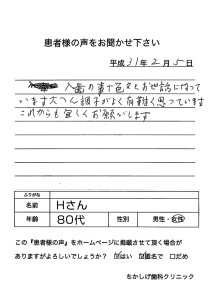 患者様の声をお聞かせ下さい
平成31年2月5日
入歯の事で色々とお世話になって
います大へん調子がよく有難く思っています
これからも宜しくお願いします
ふりがな
名前 Hさん
年齢 80代 性別 男性・女性
この『患者様の声』をホームページに掲載させて頂く場合が
ありますがよろしいでしょうか? ☑はい ☑匿名で 口だめ
ちかしげ歯科クリニック